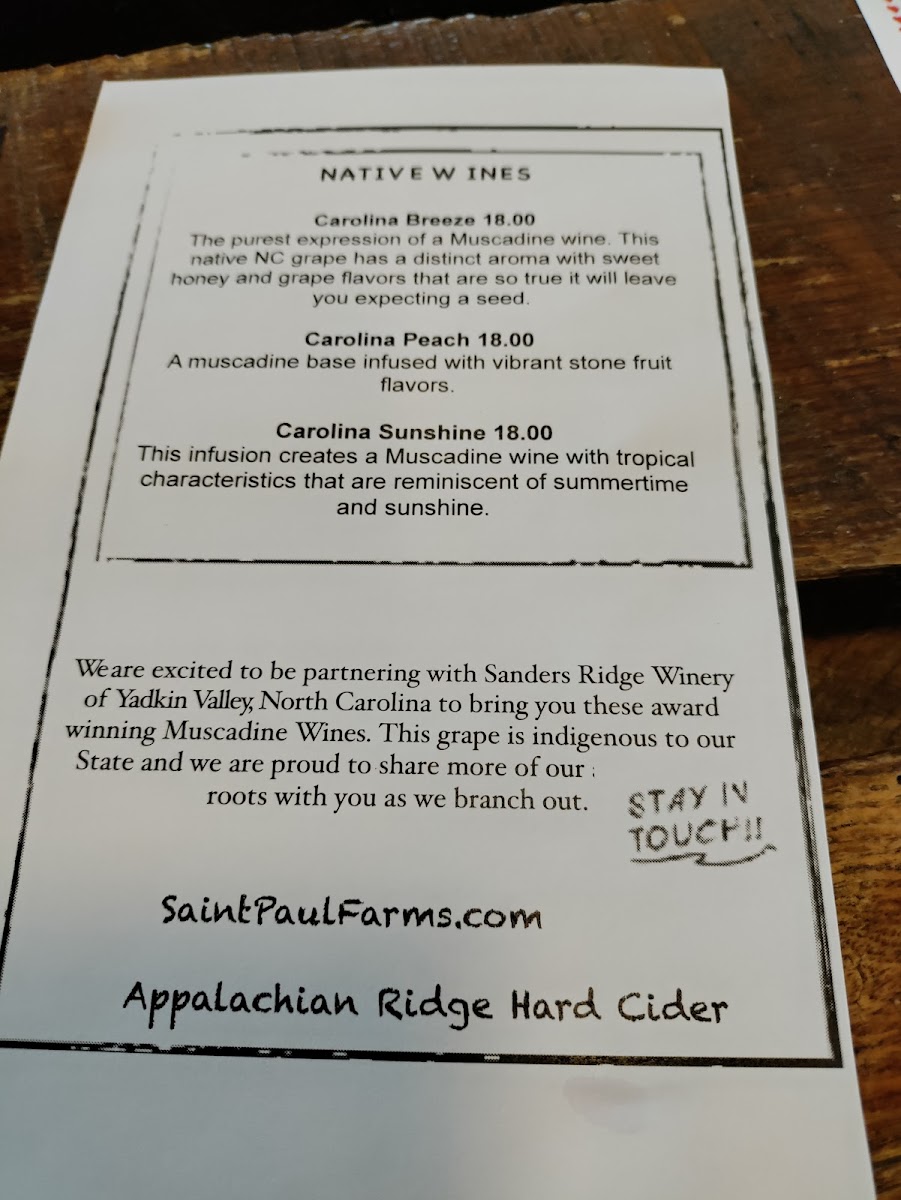 NATIVE W INES
Carolina Breeze 18.00
The purest expression of a Muscadine wine. This
native NC grape has a distinct aroma with sweet
honey and grape flavors that are so true it will leave
you expecting a seed.
Carolina Peach 18.00
A muscadine base infused with vibrant stone fruit
flavors.
Carolina Sunshine 18.00
This infusion creates a Muscadine wine with tropical
characteristics that are reminiscent of summertime
and sunshine.
We are excited to be partnering with Sanders Ridge Winery
of Yadkin Valley, North Carolina to bring you these award
winning Muscadine Wines. This grape is indigenous to our
State and we are proud to share more of our
roots with you as we branch out.
STAY IN
TOUCH!!
SaintPaulFarms.com
Appalachian Ridge Hard Cider